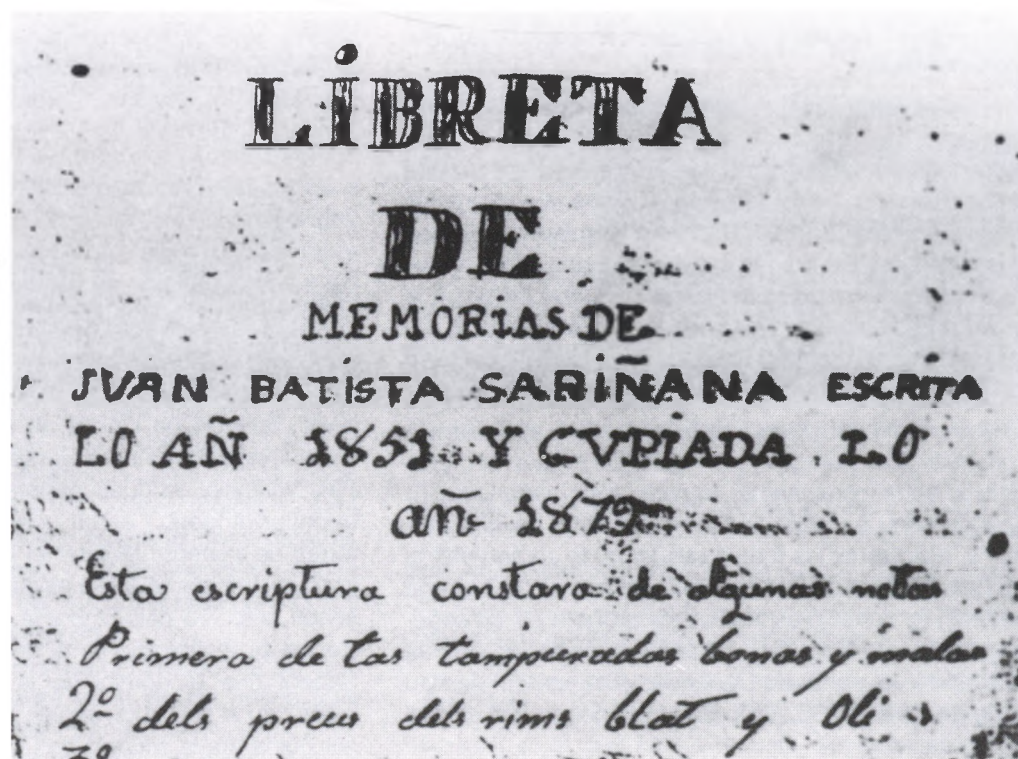 LiBRETA
DE
MEMORiAS DE
JVAN BATiSTA SARiÑANA ESCRiTA
LO AÑ 1851 Y CVPiADA LO
añ 1879
Esta escriptura constara de algunas notas
Primera de las tampuradas bonas y malas
2º dels preus dels rims blat y Oli
3º